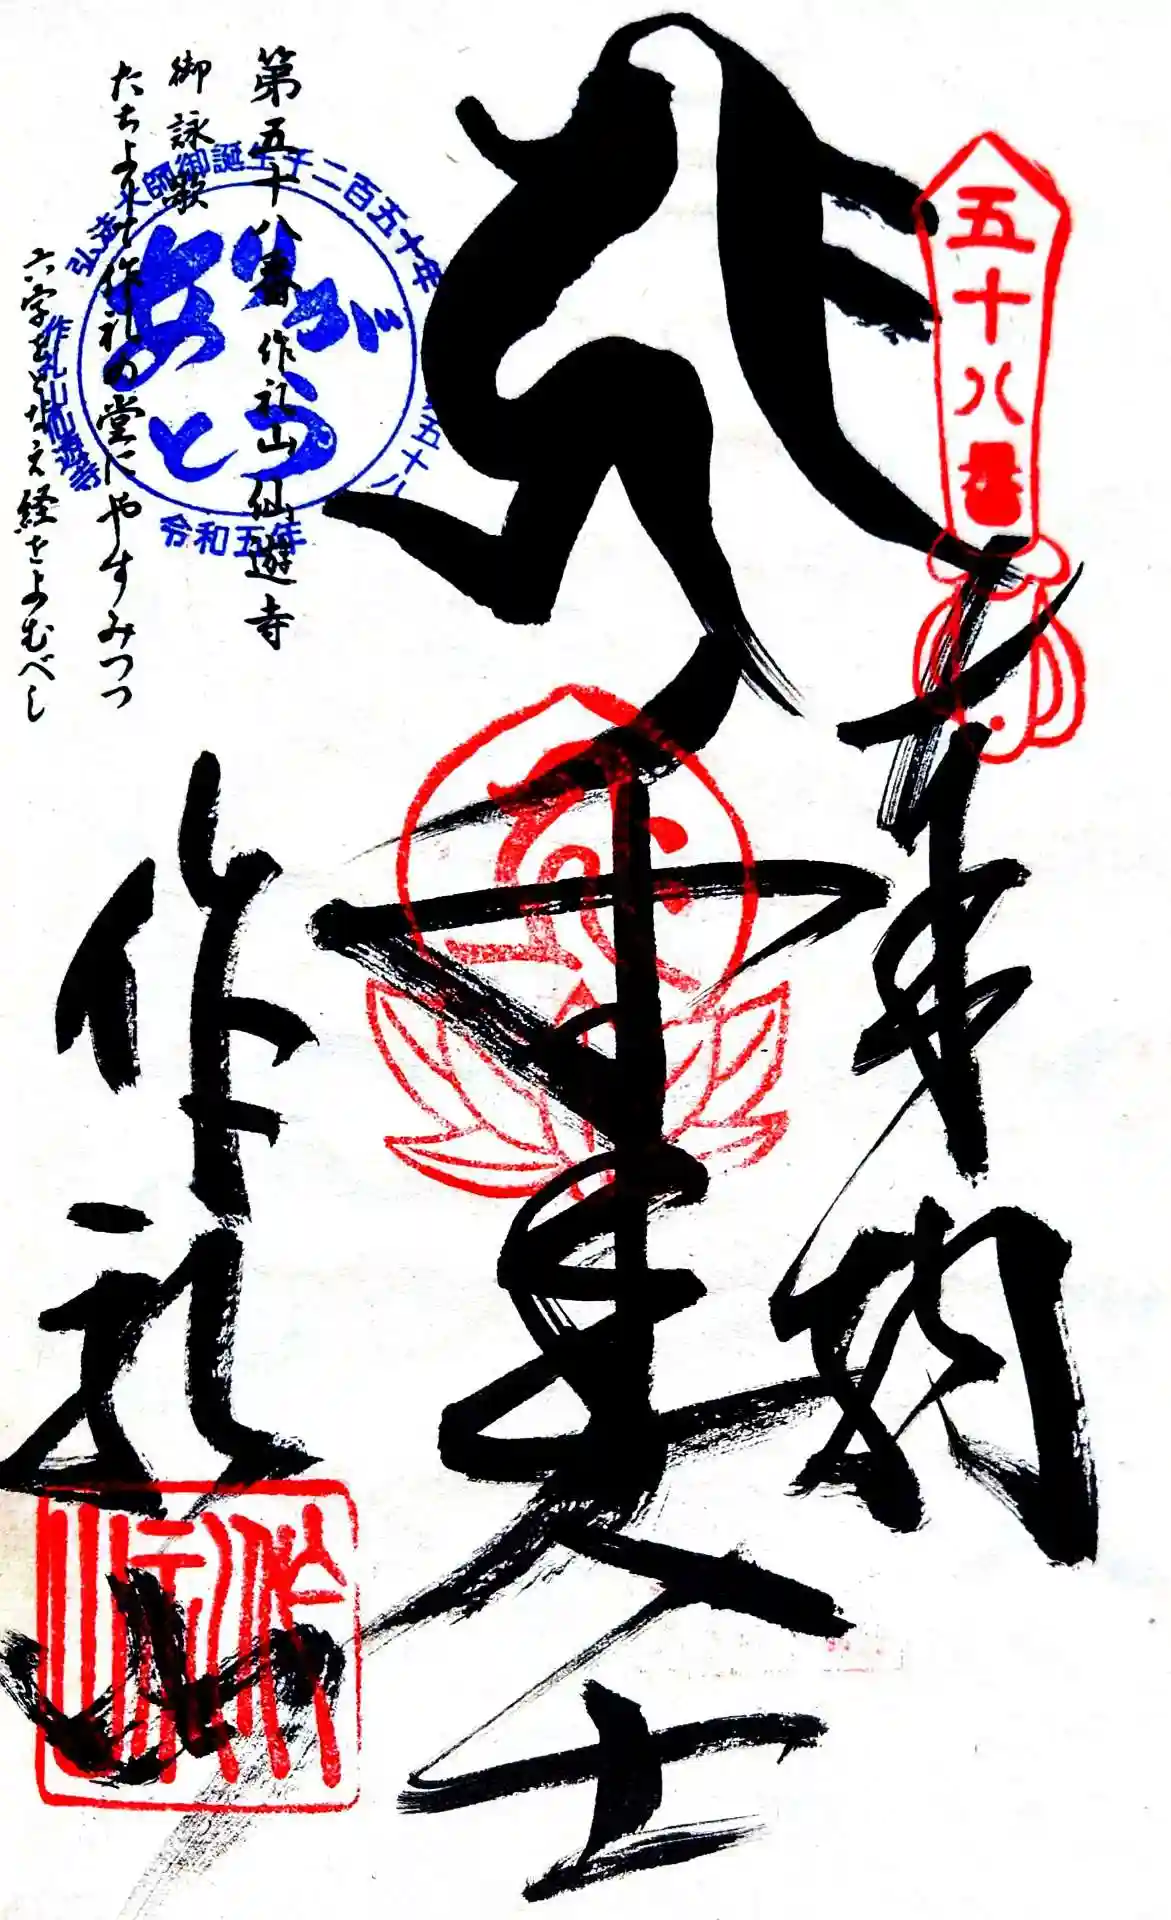 五十八番
奉納
大士
作礼山
第五十八番 作礼山 仙遊寺
御詠歌
たちよりて作礼の堂にやすみつつ
六字をとなえ経をよむべし
弘法大師御誕生千二百五十年
作礼山仙遊寺
令和五年